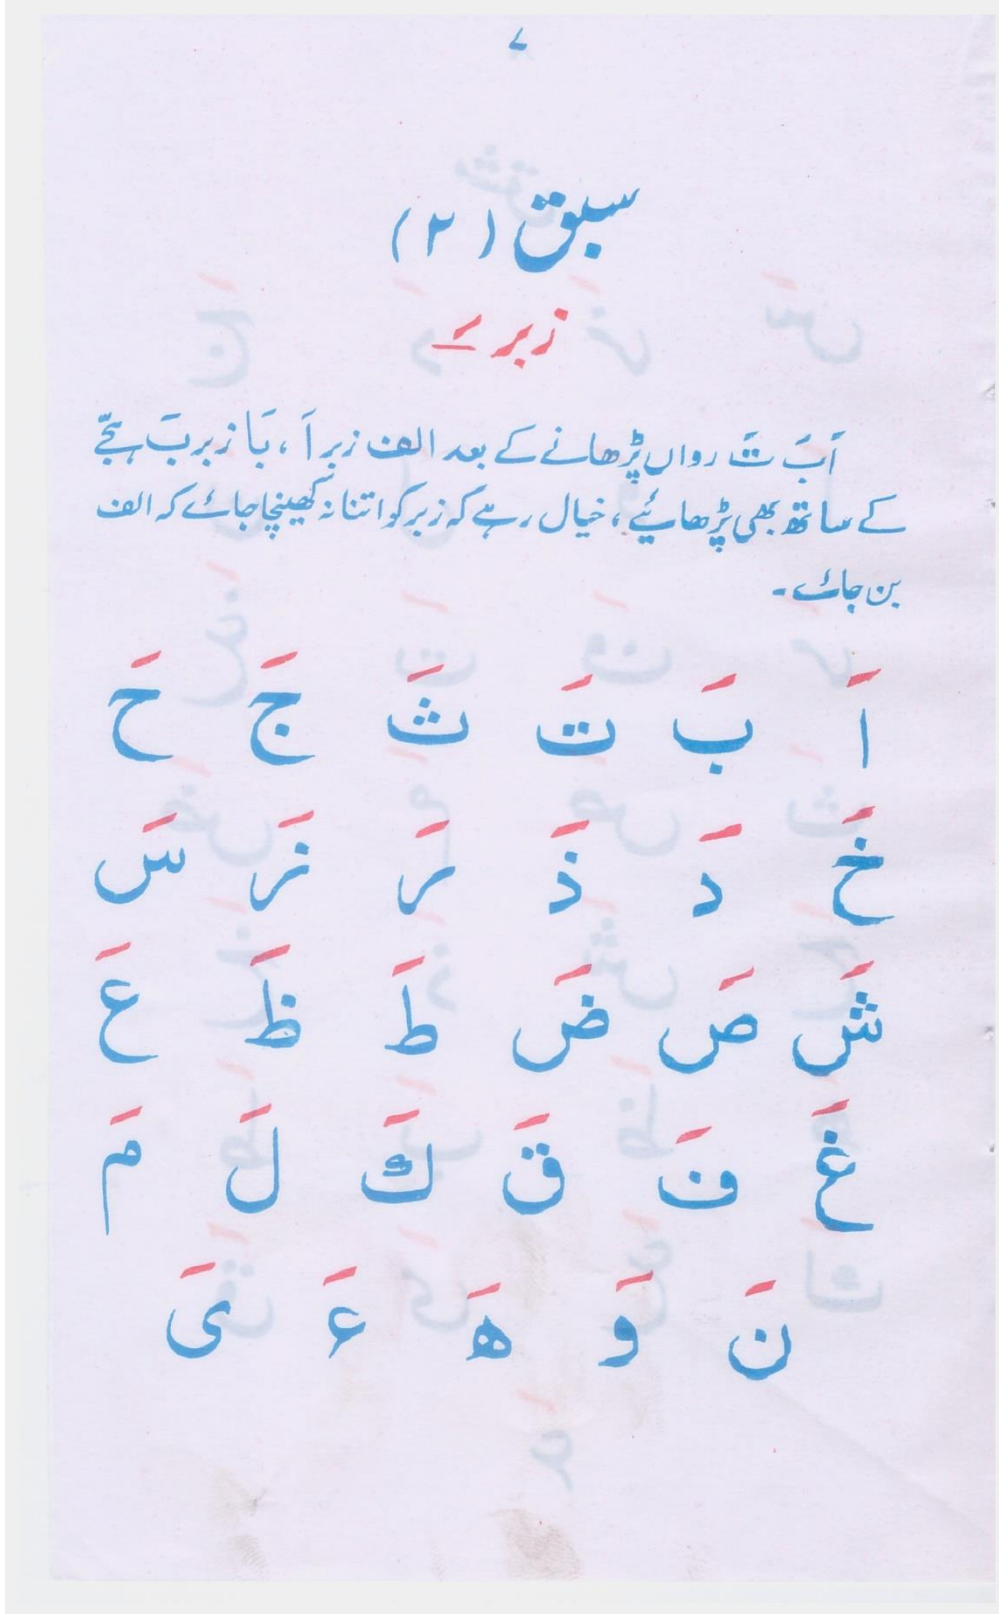 ۷
سبق (۲)
زبر ـَ
اَ بَ تَ رواں پڑھانے کے بعد الف زبر اَ ، بَا زبر بَ ہجّے
کے ساتھ بھی پڑھائیے ، خیال رہے کہ زبر کو اتنا نہ کھینچا جائے کہ الف
بن جائے ۔
اَ بَ تَ ثَ جَ حَ
خَ دَ ذَ رَ زَ سَ
شَ صَ ضَ طَ ظَ عَ
غَ فَ قَ كَ لَ مَ
نَ وَ هَ ءَ یَ